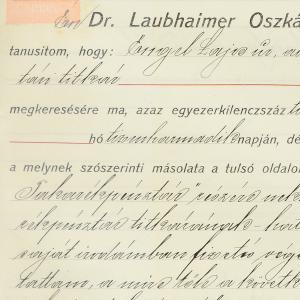 Én Dr. Laubhaimer Oszká
tanusitom, hogy: Engel Lajos úr, a
titkár
megkeresésére ma, azaz egyezerkilenczszáz
hó tizenharmadik napján, dé
a melynek szószerinti másolata a tulsó oldalo
Takarékpénztár" részére
rékpénztár titkárának
saját irodámban fizetés vége
tattam, a mire tőle a követke